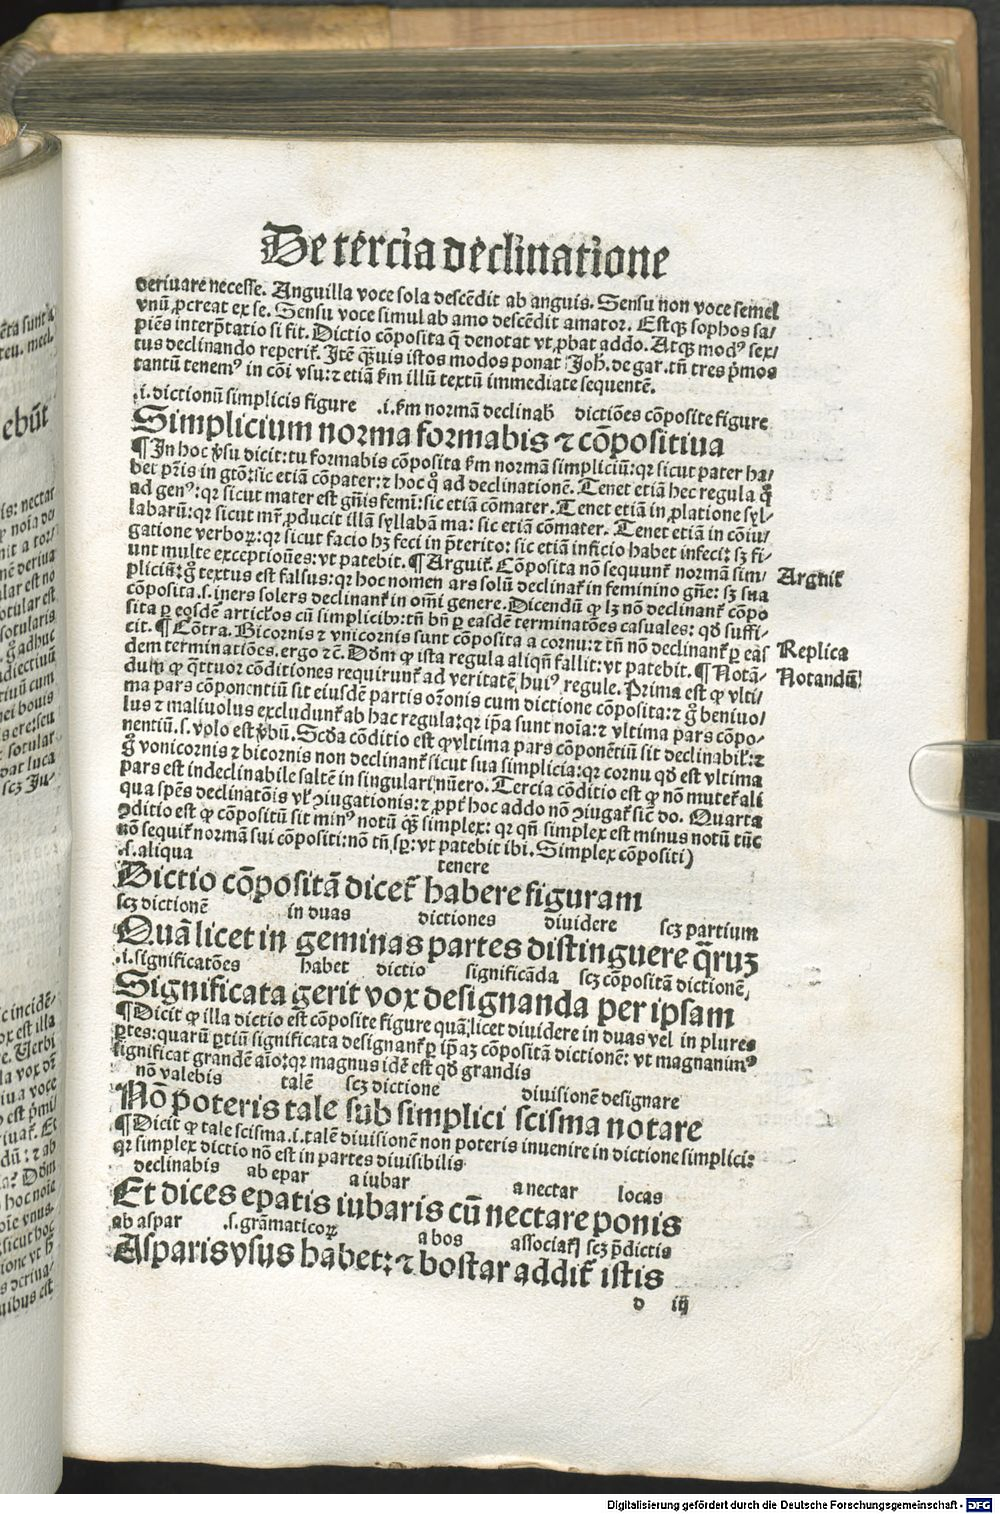 De tercia declinatione
deriuare necesse. Anguilla voce sola descēdit ab anguis. Sensu non voce semel
vnū ꝓcreat ex se. Sensu voce simul ab amo descēdit amator. Estqꝫ sophos sa/
piēs interp̄tatio si fit. Dictio cōposita q̄ denotat vt ꝓbat addo. Atqꝫ modꝰ sex/
tus declinando reperit̄. Itē q̄ꝫuis istos modos ponat Joh. de gar. tn̄ tres p̄mos
tantū tenemꝰ in cōi vsu: ⁊ etiā ẜm illū textū immediate sequentē.
.i. dictionū simplicis figure .i. ẜm normā declinab̄ dictiōes cōposite figure
Simplicium norma formabis ⁊ cōpositiua
¶ In hoc v̄su dicit: tu formabis cōposita ẜm normā simpliciū: qꝛ sicut pater ha/
bet pr̄is in gtō: sic etiā cōpater: ⁊ hoc q̊ ad declinationē. Tenet etiā hec regula q̊
ad genꝰ: qꝛ sicut mater est gn̄is femī: sic etiā cōmater. Tenet etiā in ꝓlatione syl/
labarū: qꝛ sicut mr̄ ꝓducit illā syllabā ma: sic etiā cōmater. Tenet etiā in cōiu/
gatione verboꝝ: qꝛ sicut facio hꝫ feci in p̄terito: sic etiā inficio habet infeci: sꝫ fi/
unt multe exceptiones: vt patebit. ¶ Arguit̄. Cōposita nō sequunt̄ normā sim/
pliciū: g̊ textus est falsus: qꝛ hoc nomen ars solū declinat̄ in feminino gn̄e: sꝫ sua
cōposita .s. iners solers declinant̄ in om̄i genere. Dicendū ꝙ lꝫ nō declinant̄ cōpo
sita ꝑ eosdē articĺos cū simplicibꝰ: tn̄ bn̄ ꝑ easdē terminatōes casuales: qd̄ suffi/
cit. ¶ Cōtra. Bicornis ⁊ vnicornis sunt cōposita a cornu: ⁊ tn̄ nō declinant̄ ꝑ eas
dem terminatiōes. ergo ⁊c̄. Dd̄m ꝙ ista regula aliqn̄ fallit: vt patebit. ¶ Notā/
dum ꝙ q̄ttuor cōditiones requirunt̄ ad veritatē huiꝰ regule. Prima est ꝙ vlti/
ma pars cōponentiū sit eiusdē partis or̄onis cum dictione cōposita: ⁊ g̊ beniuo/
lus ⁊ maliuolus excludunt̄ ab hac regula: qꝛ ip̄a sunt noīa: ⁊ vltima pars cōpo/
nentiū .s. volo est v̄bū. Scd̄a cōditio est ꝙ vltima pars cōponētiū sit declinabiĺ: ⁊
g̊ vonicornis ⁊ bicornis non declinant̄ sicut sua simplicia: qꝛ cornu qd̄ est vltima
pars est indeclinabile saltē in singulari nūero. Tercia cōditio est ꝙ nō mutet̄ ali
qua spēs declinatōis vĺ ꝯiugationis: ⁊ ꝓpt̄ hoc addo nō ꝯiugat̄ sic̄ do. Quarta
ꝯditio est ꝙ cōpositū sit minꝰ notū q̄ꝫ simplex: qꝛ qn̄ simplex est minus notū tūc
nō sequit̄ normam sui cōpositi: nō tn̄ sꝑ: vt patebit ibi. Simplex cōpositi)
.s. aliqua tenere
Dictio cōpositā dicet̄ habere figuram
scꝫ dictionē in duas dictiones diuidere scꝫ partium
Quā licet in geminas partes distinguere q̄ruꝫ
.i. significatōes habet dictio significāda scꝫ cōpositā dictionē
Significata gerit vox designanda per ipsam
¶ Dicit ꝙ illa dictio est cōposite figure quā licet diuidere in duas vel in plures
ꝑtes: quarū ꝑtiū significata designant̄ ꝑ ip̄aꝫ cōpositā dictionē: vt magnanimꝰ
significat grandē aīo: qꝛ magnus idē est qd̄ grandis
nō valebis talē scꝫ dictione diuisionē designare
Nō poteris tale sub simplici scisma notare
¶ Dicit ꝙ tale scisma .i. talē diuisionē non poteris inuenire in dictione simplici:
qꝛ simplex dictio nō est in partes diuisibilis
declinabis ab epar a iubar a nectar locas
Et dices epatis iubaris cū nectare ponis
ab aspar .s. grāmaticoꝝ a bos associat̄ scꝫ p̄dictis
Asparis vsus habet: ⁊ bostar addit̄ istis
d iij
Arguit̄
Replica
Notandū
Digitalisierung gefördert durch die Deutsche Forschungsgemeinschaft - DFG